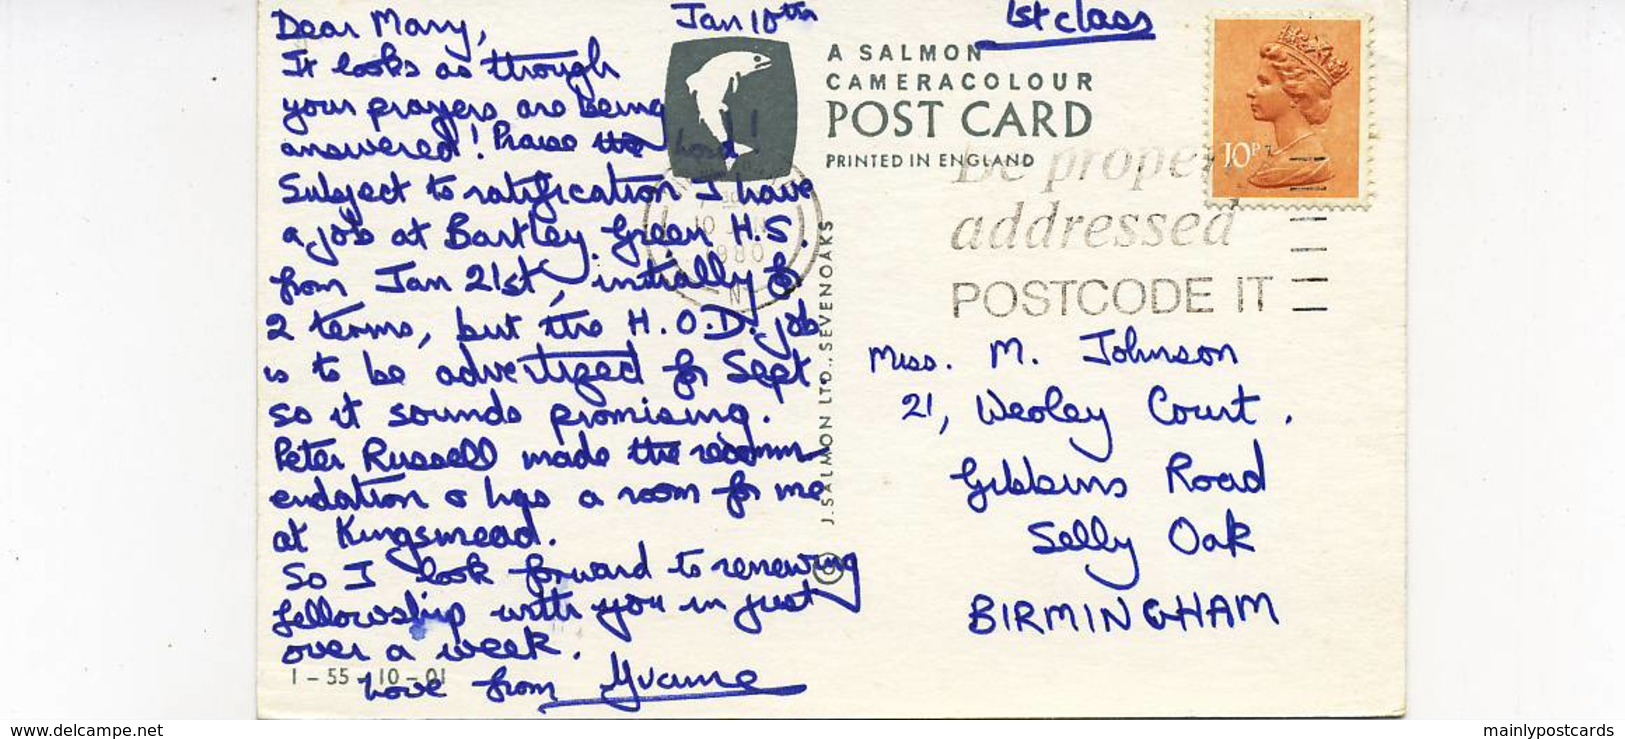 Jan 10th
Dear Mary,
It looks as through
your prayers are being
answered! Praise the Lord!
Subject to ratification I have
a job at Bartley Green H.S.
from Jan 21st, initially for
2 terms, but the H.O.D. job
is to be advertized for Sept.
so it sounds promising.
Peter Russell made the recomm-
endation & has a room for me
at Kingsmead.
So I look forward to renewing
fellowship with you in just
over a week.
Love from Yvanne
1st class
A SALMON
CAMERACOLOUR
POST CARD
PRINTED IN ENGLAND
10P
Be properly
addressed
POSTCODE IT
10 JAN
1980
© J. SALMON LTD., SEVENOAKS
Miss. M. Johnson
21, Weoley Court,
Gibbins Road
Selly Oak
BIRMINGHAM
1-55-10-01
www.delcampe.net
mainlypostcards